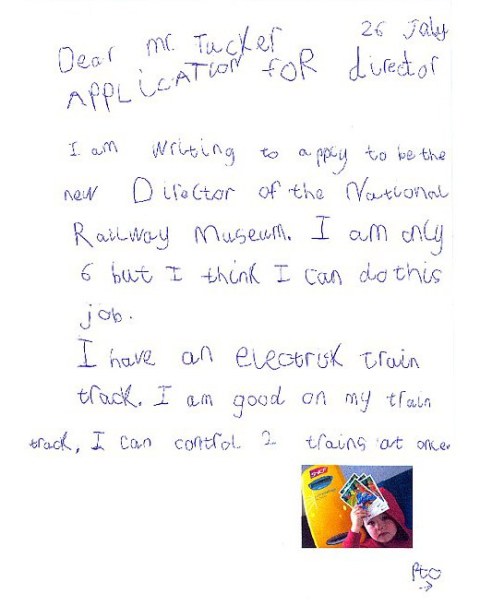 26 July
Dear Mr. Tucker
APPLiCATION FOR director
I am writing to apply to be the
new Director of the National
Railway Museum. I am only
6 but I think I can do this
job.
I have an electruk train
track. I am good on my train
track, I can control 2 trains at once.
PtO